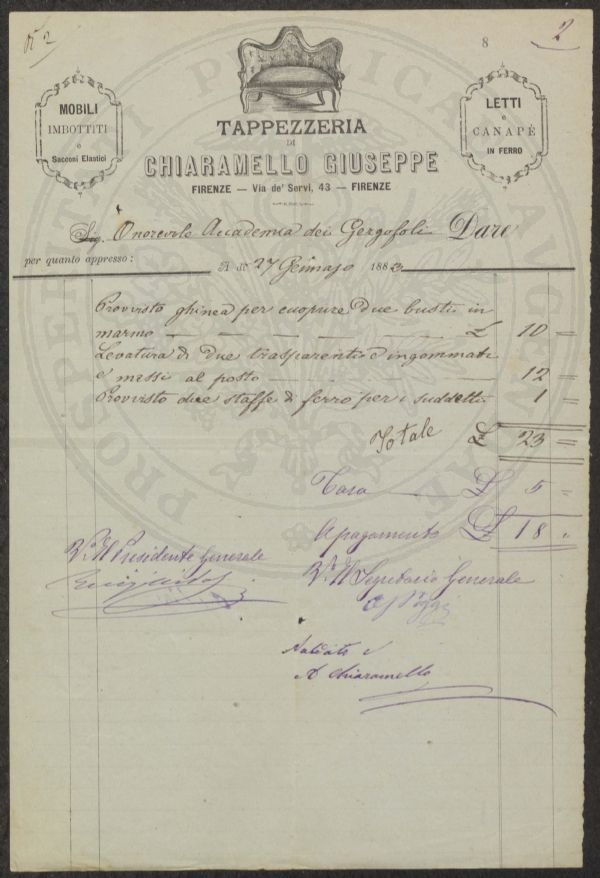 N° 2
8
2
MOBILI
IMBOTTITI
e
Sacconi Elastici
TAPPEZZERIA
DI
CHIARAMELLO GIUSEPPE
FIRENZE — Via de' Servi, 43 — FIRENZE
LETTI
e
CANAPÈ
IN FERRO
Sig. Onorevole Accademia dei Gergofoli Dare
per quanto appresso:
A dì 27 Gennajo 1883
Provvisto ghinea per cuopure due busti in
marmo — — — — — — £ 10 =
Levatura di due trasparenti e ingommati
e messi al posto — — — — — 12 =
Provvisto due staffe di ferro per i suddetti 1 =
Totale £ 23 =
Tara £ 5 =
A pagamento £ 18 "
V° Il Presidente Generale
V° Il Segretario Generale
Saldato
A Chiaramello
PROSPERITATI PUBLICAE AUGENDAE